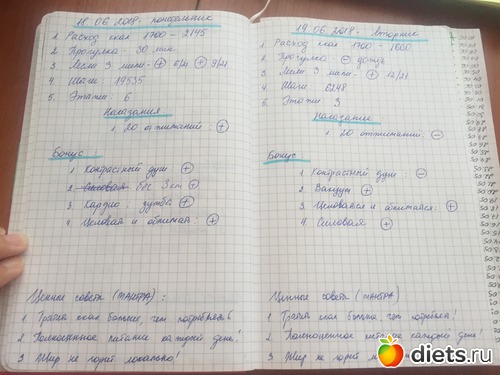 18.06.2018. понедельник
1 Расход ккал 1700 - 2145
2. Прогулка - 30 мин
3. Лесли 3 мили - ⊕ 6/21 ⊕ 9/21
4. Шаги: 19535
5. Этажи: 6
Наказания
1. 20 отжиманий ⊕
Бонус:
1 Контрастный душ ⊕
2. Силовая бег 3 км ⊕
3. Кардио: зумба ⊕
4. и обнимал: ⊕
Ценные советы (мантра):
1 ккал больше, чем
2 Полноценное питание каждый день!
3 Жир не горит локально!
19.06.2018. Вторник
1. Расход ккал 1700 - 1600
2. Прогулка - ⊖ дождь
3. Лесли 3 мили - ⊕ 12/21
4. Шаги 6248
5. Этажи 3
Наказание
1. 20 отжиманий: ⊖
Бонус
1 Контрастный душ: ⊖
2. Вакуум ⊕
3. и ⊕
4. Силовая ⊕
Ценные советы (мантра)
1 ккал больше, чем
2 Полноценное питание каждый день!
3 Жир не горит
diets.ru